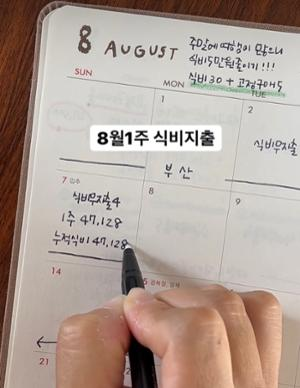 8 AUGUST
주말에 여행이 많으니
식비 5만원줄이기!!!
식비 30 + 고정구매 5
SUN
MON
TUE
8월1주 식비지출
1
2
부산
식비무지출
7 입추
8
9
식비무지출 4
1주 47,128
누적식비 47,128
14
21